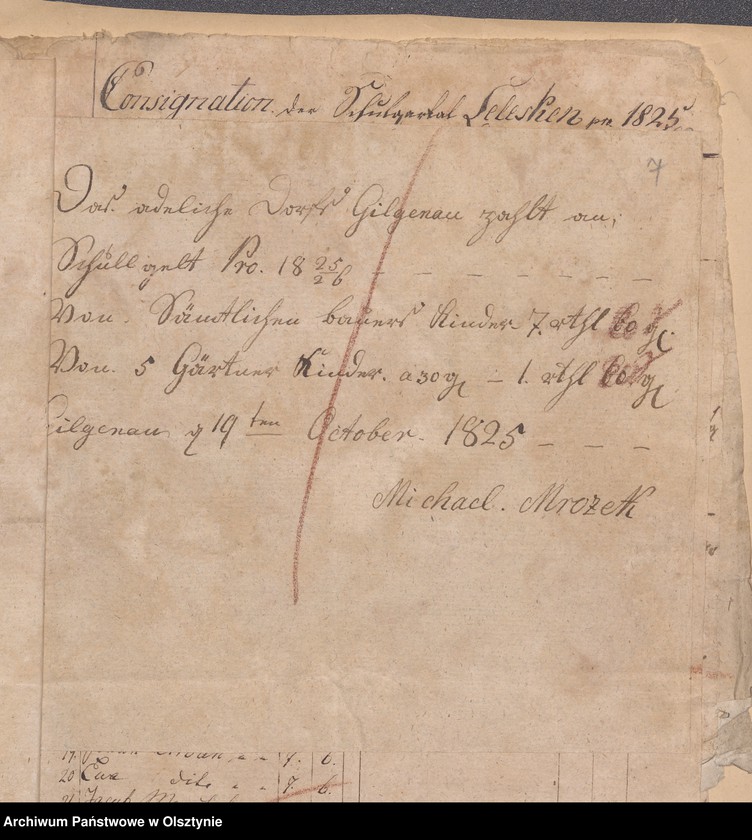 Consignation der Schulgartal Lelesken pro 1825
7
Das adeliche Dorfs Gilgenau zahlt an,
Schüll gelt Pro. 18 25/26 - - - - - -
Von. Sämtlichen bauers Kinder 7. rthl 60 g.
Von. 5 Gärtner Kinder. a 30 g – 1. rthl 60 g
Gilgenau d 19 ten October. 1825 – – –
Michael. Mrozek
19.
20 Eva dito " " 7. 6.
21 Jacob 6.
Archiwum Państwowe w Olsztynie